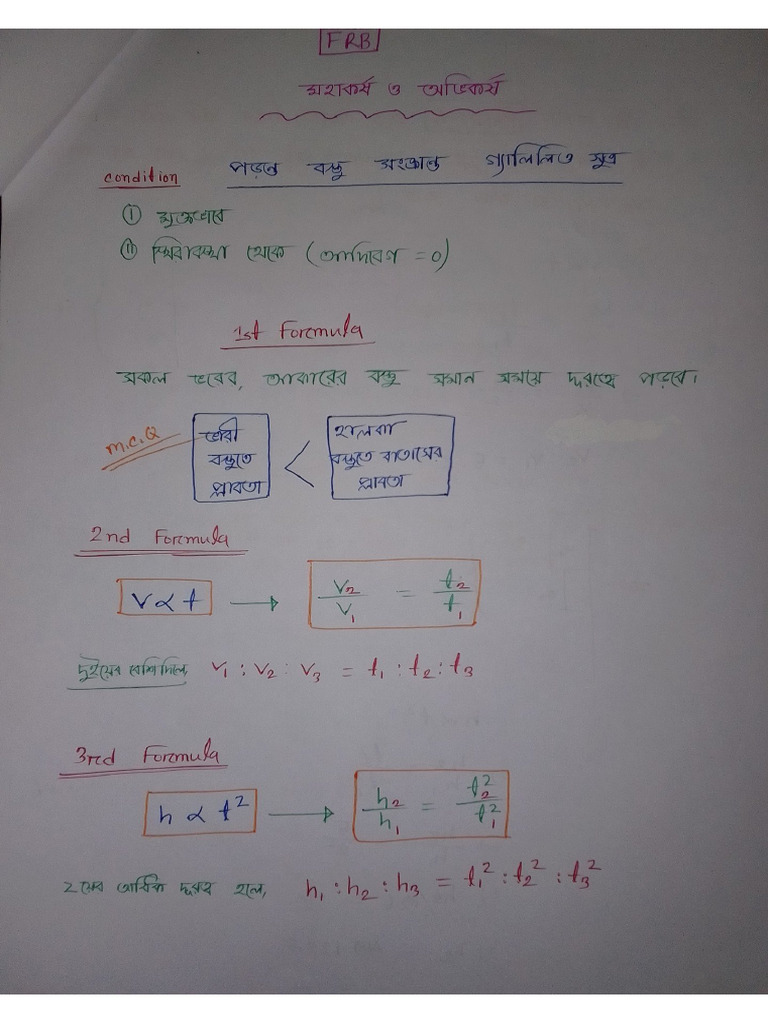 FRB
মহাকর্ষ ও অভিকর্ষ
condition
পড়ন্ত বস্তু সংক্রান্ত গ্যালিলিও সূত্র
① মুক্তভাবে
② স্থিরাবস্থা থেকে (আদিবেগ = 0)
1st Formula
সকল ভরের, আকারের বস্তু সমান সময়ে দূরত্বে পড়বে।
M.C.Q
ভারী
বস্তুতে
প্লাবতা
<
হালকা
বস্তুতে বাতাসের
প্লাবতা
2nd Formula
v ∝ t → v₂/v₁ = t₂/t₁
দুইয়ের বেশি দিলে, v₁ : v₂ : v₃ = t₁ : t₂ : t₃
3rd Formula
h ∝ t² → h₂/h₁ = t₂²/t₁²
2 য়ের অধিক দূরত্ব হলে, h₁ : h₂ : h₃ = t₁² : t₂² : t₃²